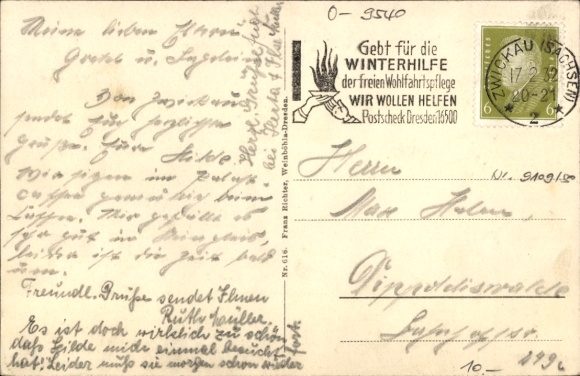 Meine lieben Eltern
Gretel u.
Von Zwickau
sendet Euch herzliche
Grüße. Eure Hilde.
Wir sitzen im Palast
gemütlich beim
Mir gefällt es
sehr gut in
leider ist die Zeit bald
um.
Freundl. Grüße sendet Ihnen
Ruth Müller.
Es ist doch wirklich zu schön
daß Hilde mich einmal besucht
hat! Leider muß sie morgen schon wieder
fort.
Herzl. Grüße
Nr. 616. Franz Richter, Weinböhla-Dresden.
0-9540
Gebt für die
WINTERHILFE
der freien Wohlfahrtspflege
WIR WOLLEN HELFEN
Postscheck Dresden 16500
ZWICKAU (SACHSEN)
17.2.32
20-21
* 2 *
6 6
Herrn
Nr. 9109/30
Max
Dippoldiswalde
10.-